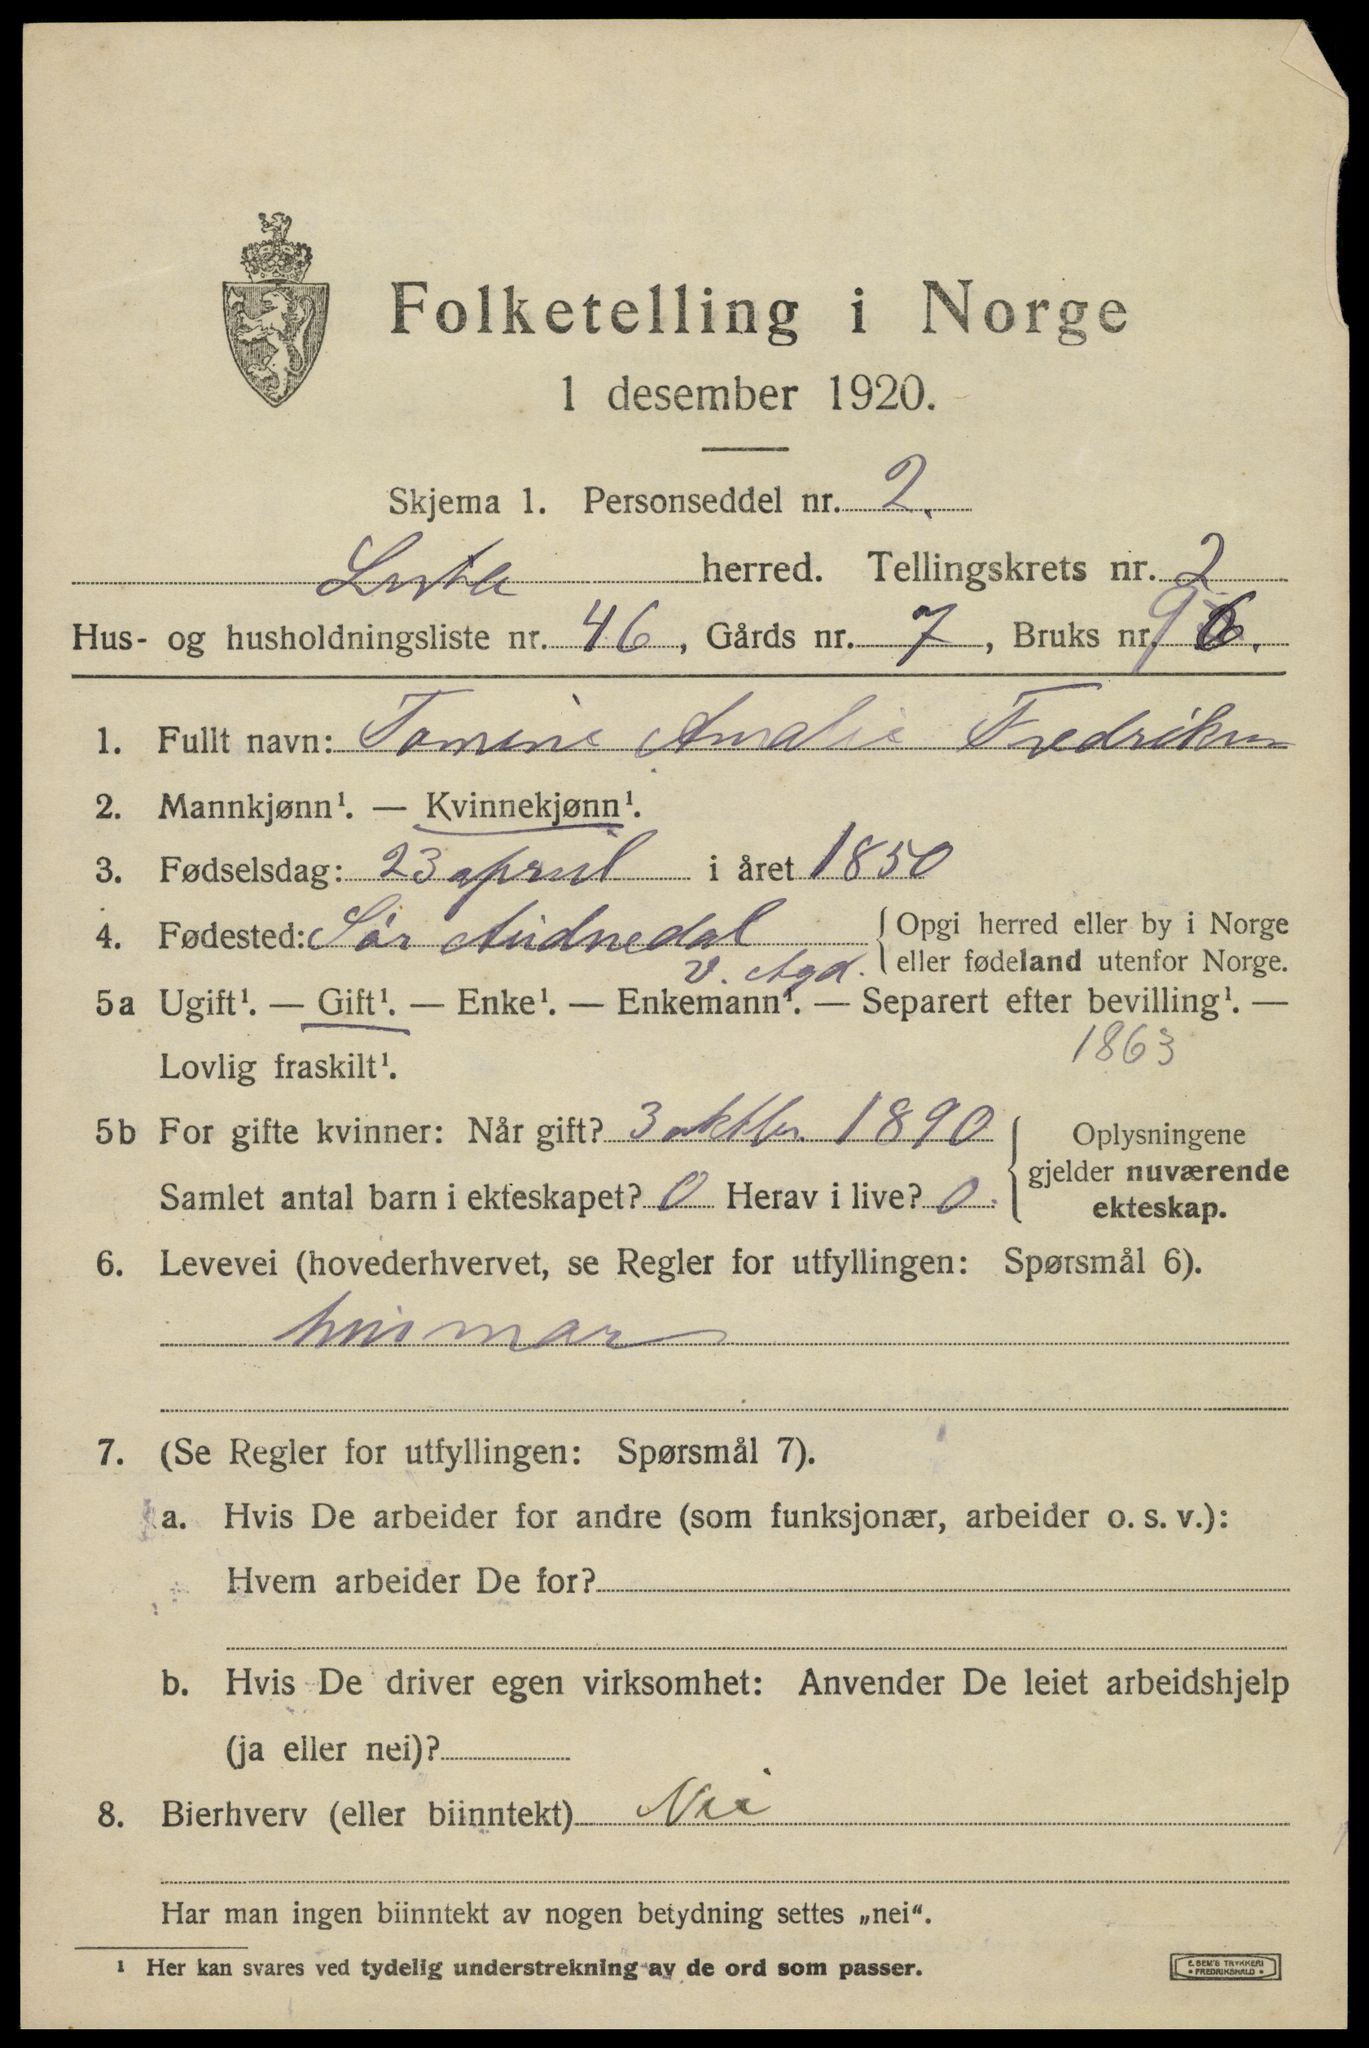 Folketelling i Norge
1 desember 1920.
Skjema 1. Personseddel nr. 2.
Lista herred. Tellingskrets nr. 2
Hus- og husholdningsliste nr. 46, Gårds nr. 7, Bruks nr. 96.
1. Fullt navn: Tomine Amalie Fredriksen
2. Mannkjønn¹. — Kvinnekjønn¹.
3. Fødselsdag: 23 april i året 1850
4. Fødested: Sør Audnedal { Opgi herred eller by i Norge
v. Agd. eller fødeland utenfor Norge.
5a Ugift¹. — Gift¹. — Enke¹. — Enkemann¹. — Separert efter bevilling¹. —
1863
Lovlig fraskilt¹.
5b For gifte kvinner: Når gift? 3 oktbr. 1890 { Oplysningene
gjelder nuværende
Samlet antal barn i ekteskapet? 0 Herav i live? 0.
ekteskap.
6. Levevei (hovederhvervet, se Regler for utfyllingen: Spørsmål 6).
husmor
7. (Se Regler for utfyllingen: Spørsmål 7).
a. Hvis De arbeider for andre (som funksjonær, arbeider o. s. v.):
Hvem arbeider De for?
b. Hvis De driver egen virksomhet: Anvender De leiet arbeidshjelp
(ja eller nei)?
8. Bierhverv (eller biinntekt) Nei
Har man ingen biinntekt av nogen betydning settes „nei“.
¹ Her kan svares ved tydelig understrekning av de ord som passer.
E. SEM'S TRYKKERI
FREDRIKSHALD